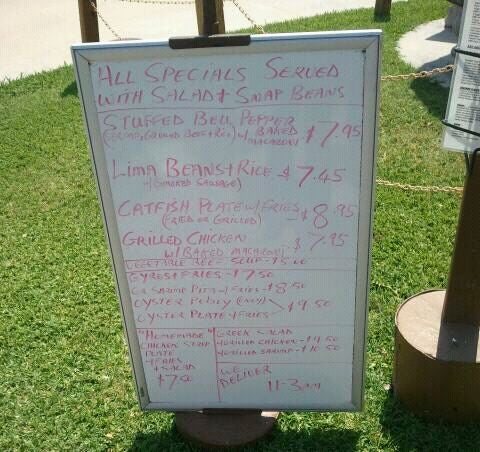 ALL SPECIALS SERVED
WITH SALAD + SNAP BEANS
STUFFED BELL PEPPER
GROUND BEEF + RICE) w/ BAKED MACARONI $7.95
LIMA BEANS + RICE $7.45
(SMOKED SAUSAGE)
CATFISH PLATE w/ FRIES $8.95
(FRIED OR GRILLED)
GRILLED CHICKEN $7.95
w/ BAKED MACARONI
VEGETABLE BEEF SOUP
GYROS + FRIES - $7.50
SHRIMP PITA + FRIES - $8.50
OYSTER POBOY (ONLY) $9.50
OYSTER PLATE + FRIES
"HOMEMADE"
CHICKEN STRIP
PLATE
+ FRIES
+ SALAD
$7.50
GREEK SALAD
GRILLED CHICKEN - $9.50
GRILLED SHRIMP - $10.50
WE
DELIVER
11-3